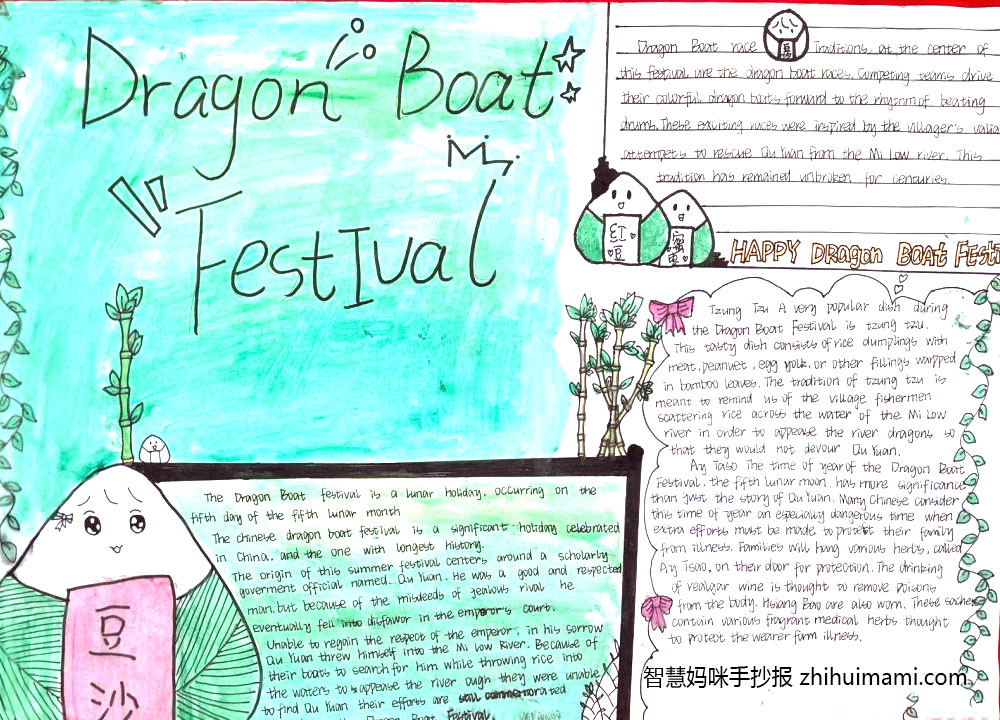 Dragon Boat
FestIval
Dragon Boat race Traditions at the center of
this festival are the dragon boat races. Competing teams drive
their colorful dragon boats forward to the rhythm of beating
drums. These exciting races were inspired by the villager's valia
attempets to rescue Qu Yuan from the Mi Low river. This
tradition has remained unbroken for centuries.
红豆
蜜枣
HAPPY Dragon Boat Festi
Tzung Tzu A very popular dish during
the Dragon Boat Festival is tzung tzu.
This tasty dish consists of rice dumplings with
meat, peanuet, egg yolk, or other fillings warpped
in bamboo leaves. The tradition of tzung tzu is
meant to remind us of the village fishermen
scattering rice across the water of the Mi Low
river in order to appease the river dragons so
that they would not devour Qu Yuan.
Ay Taso The time of year of the Dragon Boat
Festival, the fifth lunar moon, has more significance
than just the story of Qu Yuan. Many Chinese consider
this time of year an especially dangerous time when
extra efforts must be made to protect their family
from illness. Families will hang various herbs, called
Ay Tsao, on their door for protection. The drinking
of realgar wine is thought to remove poisons
from the body. Hsiang Bao are also worn. These sachets
contain various fragrant medical herbs thought
to protect the wearer form illness.
The Dragon Boat festival is a lunar holiday, occurring on the
fifth day of the fifth lunar month
The chinese dragon boat festival is a significant holiday celebrated
in China, and the one with longest history.
The origin of this summer festival centers around a scholarly
goverment official named. Qu Yuan. He was a good and respected
man, but because of the misdeeds of jealous rival he
eventually fell into disfavor in the emperor's court.
Unable to regain the respect of the emperor, in his sorrow
Qu Yuan threw himself into the Mi Low River. Because of
their boats to search for him while throwing rice into
the waters to appease the river ough they were unable
to find Qu Yuan their efforts are still commemorated
Dragon Boat Festival.
豆沙
智慧妈咪手抄报 zhihuimami.com